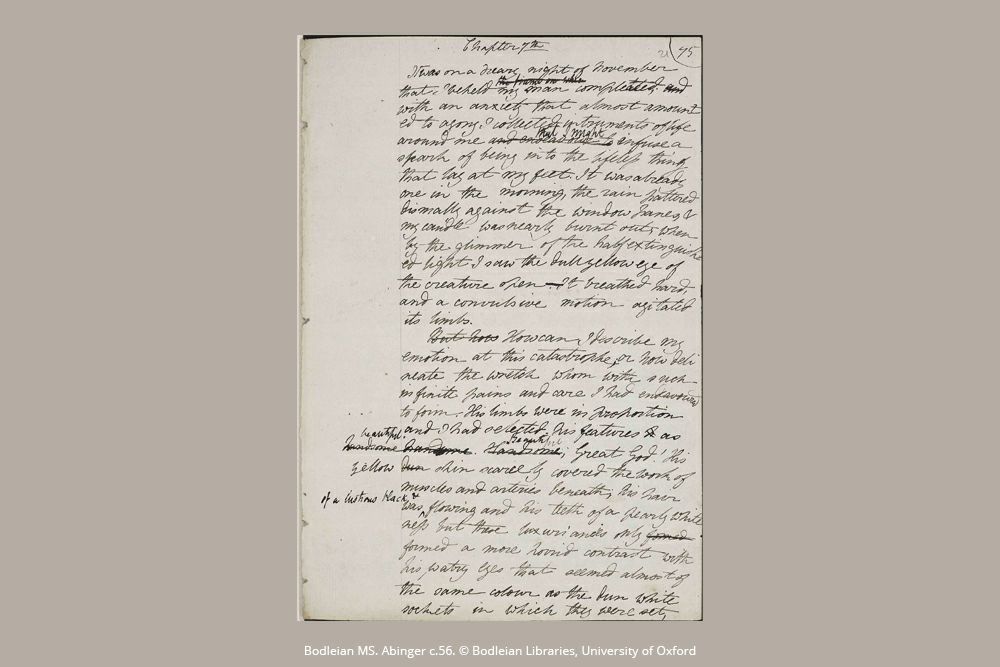 Chapter 7th
21 95
It was on a dreary night of November
that I beheld my man compleated and
with an anxiety that almost amount
ed to agony I collected instruments of life
around me and endeavour to infuse a
that I might
spark of being into the lifeless thing
that lay at my feet. It was already
one in the morning, the rain pattered
dismally against the window panes, &
my candle was nearly burnt out, when
by the glimmer of the half extinguish
ed light I saw the dull yellow eye of
the creature open It breathed hard,
and a convulsive motion agitated
its limbs.
But how How can I describe my
emotion at this catastrophe, or how deli
neate the wretch whom with such
infinite pains and care I had endeavoured
to form. His limbs were in proportion
and I had selected his features & as
beautiful
handsome handsome. Handsome, Great God! His
Beautiful
yellow dun skin scarcely covered the work of
muscles and arteries beneath, his hair
of a lustrous black &
was flowing and his teeth of a pearly white
ness but these luxuriancies only formed
formed a more horrid contrast with
his watry eyes that seemed almost of
the same colour as the dun white
sockets in which they were set,
Bodleian MS. Abinger c.56. © Bodleian Libraries, University of Oxford